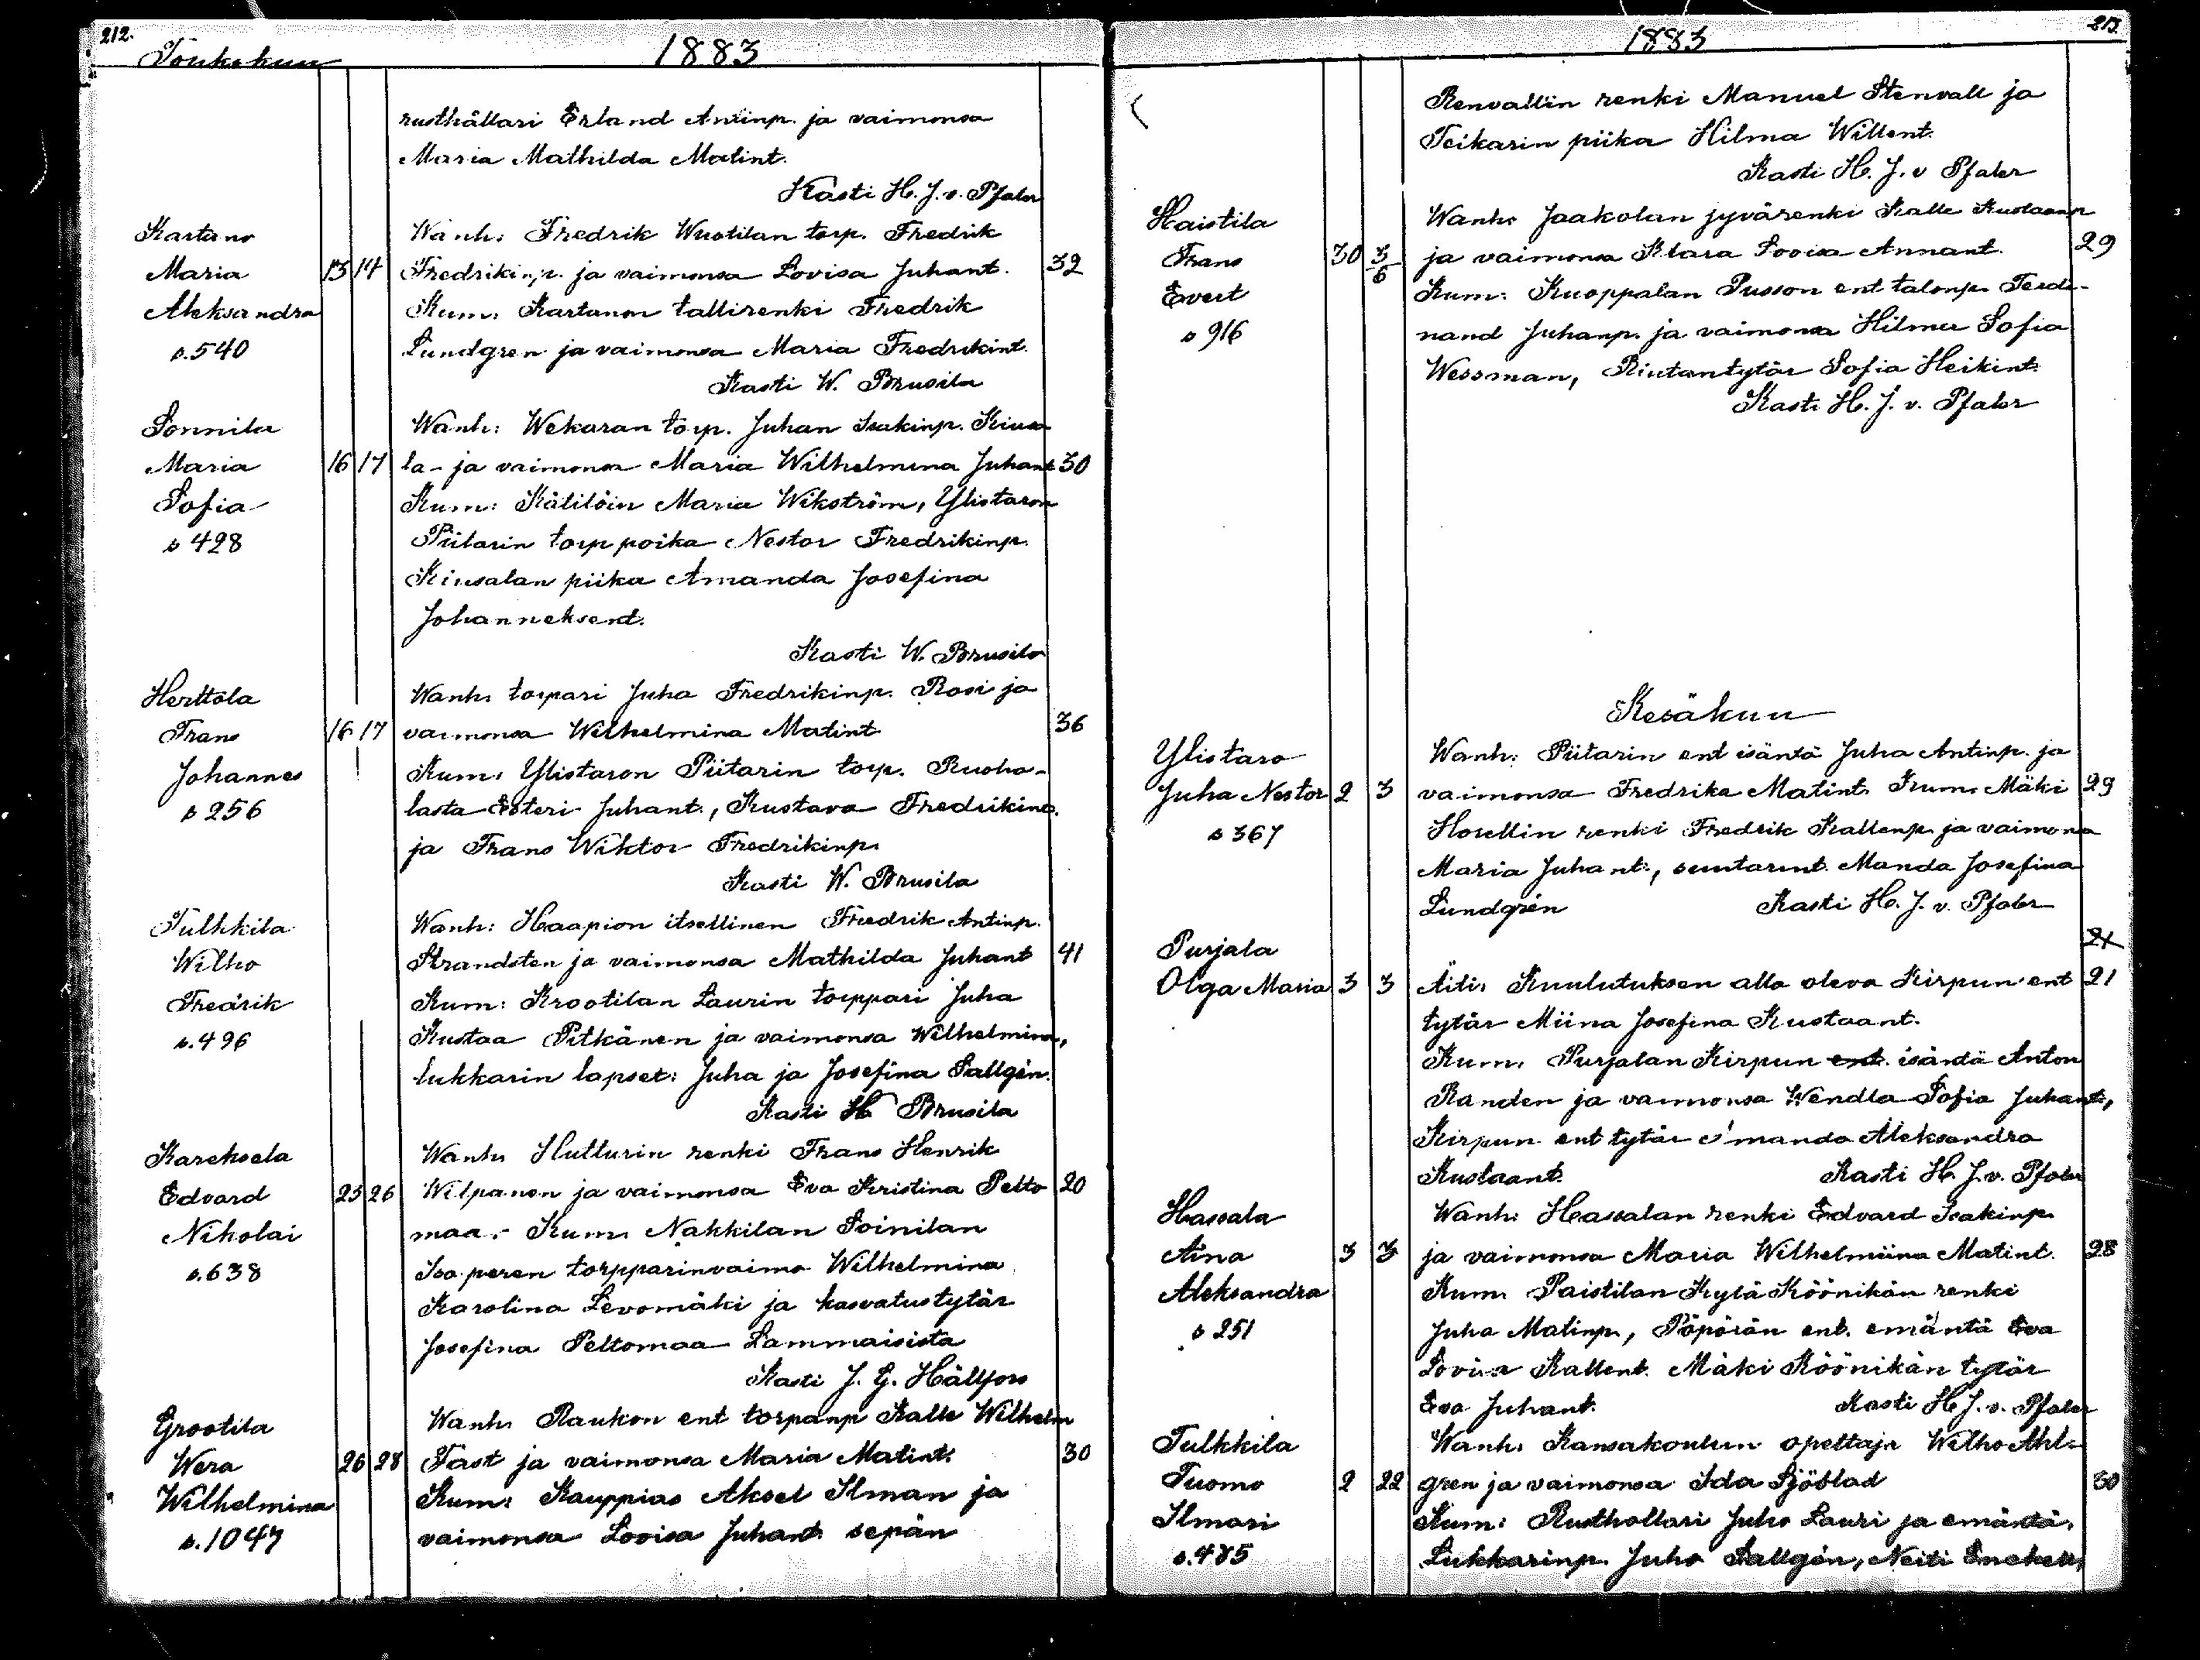 212.
Toukokuu
1883
rusthållari Erland Antinp. ja vaimonsa
Maria Mathilda Matint.
Kasti H. J. v. Pfaler
Kartano
Wanh: Fredrik Wuotilan torp. Fredrik
Maria 13 14 Fredrikinp. ja vaimonsa Lovisa Juhant. 32
Aleksandra Kum: Kartanon tallirenki Fredrik
s.540 Lundgren ja vaimonsa Maria Fredrikint.
Kasti W. Brusila
Sonnila Wanh: Wekaran torp. Juhan Isakinp. Kiusa
Maria 16 17 la- ja vaimonsa Maria Wilhelmina Juhant 30
Sofia Kum: Kätilöin Maria Wikström, Ylistaron
s 428 Piitarin torp poika Nestor Fredrikinp.
Kiusalan piika Amanda Josefina
Johanneksent.
Kasti W. Brusila
Herttola Wanh: torpari Juha Fredrikinp. Rosi ja
Frans 16 17 vaimonsa Wilhelmina Matint 36
Johannes Kum: Ylistaron Piitarin torp. Ruoho-
s 256 lasta Esteri Juhant., Kustava Fredrikint.
ja Frans Wiktor Fredrikinp.
Kasti W. Brusila
Tulkkila Wanh: Haapion itsellinen Fredrik Antinp.
Wilho Strandsten ja vaimonsa Mathilda Juhant 41
Fredrik Kum: Krootilan Laurin torppari Juha
s.496 Kustaa Pitkänen ja vaimonsa Wilhelmina,
lukkarin lapset: Juha ja Josefina Sallgén.
Kasti H Brusila
Kareksela Wanh: Hutturin renki Frans Henrik
Edvard 25 26 Wilpanen ja vaimonsa Eva Kristina Pelto 20
Nikolai maa.- Kum: Nakkilan Soinilan
s.638 Iso peren torpparinvaimo Wilhelmina
Karolina Levomäki ja kasvatustytär
Josefina Peltomaa Lammaisista
Kasti J. G. Hällfors
Grootila Wanh: Raukon ent torpanp Kalle Wilhelm
Wera 26 28 Fast ja vaimonsa Maria Matint. 30
Wilhelmina Kum: Kauppias Aksel Ilman ja
s.1047 vaimonsa Lovisa Juhant. sepän
1883
213.
Renvallin renki Manuel Stenvall ja
Teikarin piika Hilma Willent.
Kasti H. J. v Pfaler
Haistila Wanh: Jaakolan jyvärenki Kalle Kustaanp
Frans 30 3/6 ja vaimonsa Klara Lovisa Annant. 29
Evert Kum: Kuoppalan Pusson ent talonp. Ferdi-
s 916 nand Juhanp. ja vaimonsa Hilma Sofia
Wessman, Rintantytär Sofia Heikint.
Kasti H. J. v. Pfaler
Kesäkuu
Ylistaro Wanh: Piitarin ent isäntä Juha Antinp. ja
Juha Nestor 2 3 vaimonsa Fredrika Matint. Kum: Mäki 29
s 367 Horellin renki Fredrik Kallenp. ja vaimonsa
Maria Juhant., suutarint. Manda Josefina
Lundgrén Kasti H. J. v. Pfaler
Purjala 21
Olga Maria 3 3 Äiti: Kuulutuksen alla oleva Kirpun ent 21
tytär Miina Josefina Kustaant.
Kum: Purjalan Kirpun ent. isäntä Anton
Randen ja vaimonsa Wendla Sofia Juhant.,
Kirpun ent tytär Amanda Aleksandra
Kustaant. Kasti H. J. v. Pfaler
Hassala Wanh: Hassalan renki Edvard Isakinp.
Aina 3 3 ja vaimonsa Maria Wilhelmiina Matint. 28
Aleksandra Kum: Paistilan Kylä Köönikän renki
s 251 Juha Matinp., Pöpörän ent. emäntä Eva
Lovisa Kallent. Mäki Köönikän tytär
Eva Juhant. Kasti H J. v. Pfaler
Tulkkila Wanh: Kansakoulun opettaja Wilho Ahl-
Tuomo 2 22 gren ja vaimonsa Ida Sjöblad 30
Ilmari Kum: Rusthollari Juho Lauri ja emäntä,
s.485 Lukkarinp. Juho Sallgén, Neiti Enckell,